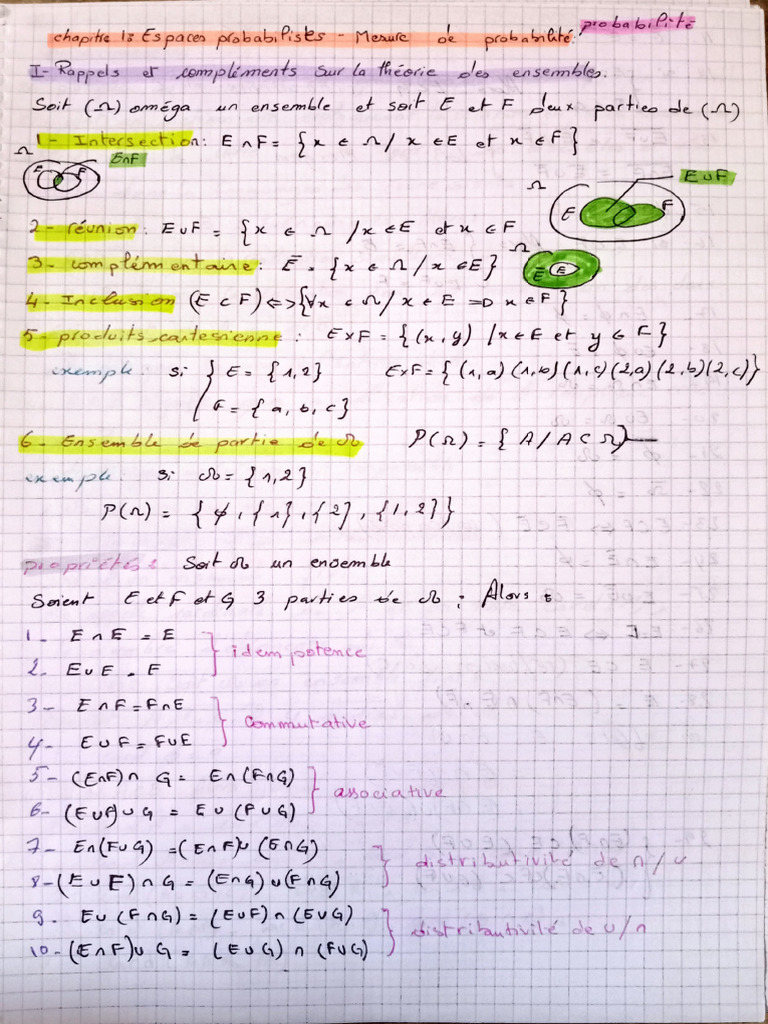 probabilité
chapitre 1: Espaces probabilistes - Mesure de probabilité:
I- Rappels et compléments sur la théorie des ensembles.
Soit (Ω) oméga un ensemble et soit E et F deux parties de (Ω)
1- Intersection: E ∩ F = { x ∈ Ω / x ∈ E et x ∈ F }
Ω E∩F
E F
Ω E∪F
E F
2- réunion: E∪F = { x ∈ Ω / x ∈ E et x ∈ F
3- complémentaire: Ē = { x ∈ Ω / x ∈ E }
Ω Ē E
4- Inclusion (E ⊂ F) <=> {∀x ∈ Ω / x ∈ E => x ∈ F }
5- produits cartesienne : E×F = { (x, y) / x ∈ E et y ∈ F }
exemple: si { E = {1,2} E×F = { (1,a) (1,b) (1,c) (2,a) (2,b) (2,c) }
F = { a, b, c }
6- Ensemble de partie de Ω P(Ω) = { A / A ⊂ Ω }
exemple: si Ω = {1,2}
P(Ω) = { ∅, {1}, {2}, {1,2} }
propriétés: Soit Ω un ensemble
Soient E et F et G 3 parties de Ω : Alors :
1- E ∩ E = E
2- E∪E = E
idempotence
3- E ∩ F = F ∩ E
4- E ∪ F = F∪E
Commutative
5- (E∩F) ∩ G = E∩(F∩G)
6- (E∪F) ∪ G = E ∪ (F ∪ G)
associative
7- E∩(F∪G) = (E∩F)∪ (E∩G)
8- (E ∪ E) ∩ G = (E∩G) ∪ (F∩G)
distributivité de ∩ / ∪
9- E∪ (F∩G) = (E∪F) ∩ (E∪G)
10- (E∩F) ∪ G = (E∪G) ∩ (F∪G)
distributivité de ∪/∩